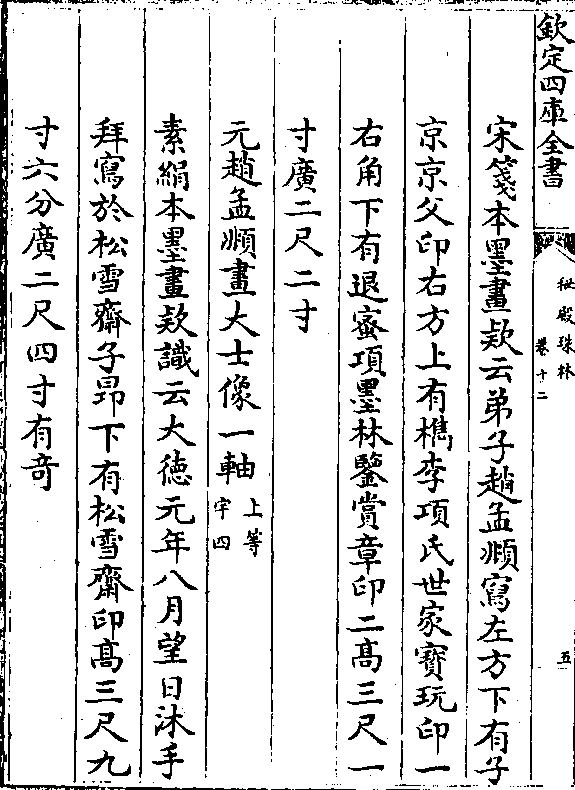 欽定四庫全書
秘殿珠林
卷十二
五
宋箋本墨畫款云弟子趙孟頫寫左方下有子
京京父印右方上有檇李項氏世家寳玩印一
右角下有退宻項墨林鑒賞章印二髙三尺一
寸廣二尺二寸
元趙孟頫畫大士像一軸上等
宇四
素絹本墨畫欵識云大徳元年八月望日沐手
拜寫於松雪齋子昻下有松雪齋印髙三尺九
寸六分廣二尺四寸有竒